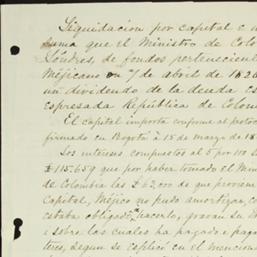 Liquidacion por capital e
suma que el Ministro de Colo
Lóndres, de fondos pertenescient
Méjicano en 7 de abril de 1826
un dividendo de la deuda es
espresada República de Colom
El capital importa conforme al protoc
firmado en Bogotá à 15 de marzo de 18
Los intereses compuestos al 5 por 100 s
£ 115.659 que por haber tomado el Mini
de Colombia las £ 63,000 de que provien
Capital, Méjico no pudo amortizar, c
estaba obligado a hacerlo, gravan su
e sobre los cuales ha pagado e paga
teres, segun se esplicó en el mencion